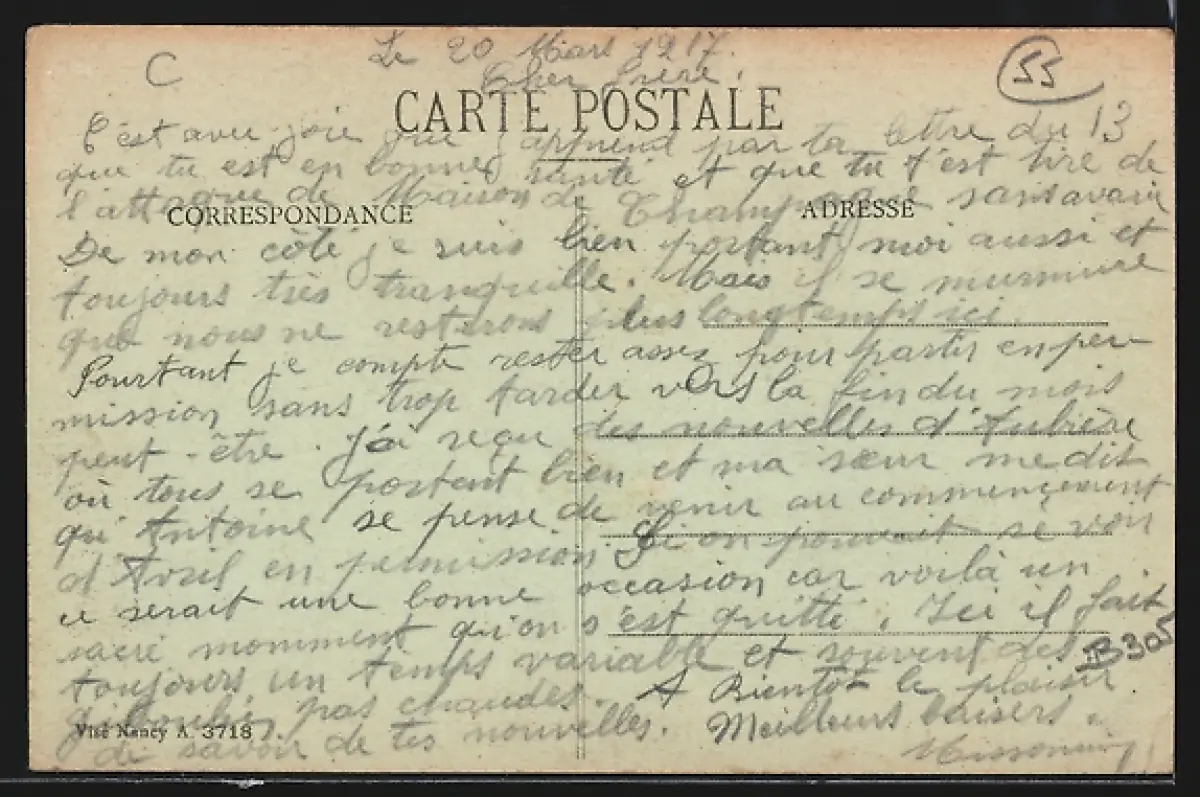 C
Le 20 Mars 1917.
55
Cher frère,
CARTE POSTALE
C'est avec joie que j'apprend par ta lettre du 13
que tu est en bonne santé et que tu t'est tiré de
l'attaque de Maison de Champagne sans avoir
CORRESPONDANCE
ADRESSE
De mon côté je suis bien portant moi aussi et
toujours très tranquille. Mais il se murmure
que nous ne resterons plus longtemps ici.
Pourtant je compte rester assez pour partir en per-
mission sans trop tarder vers la fin du mois
peut-être. J'ai reçu des nouvelles d'Aubière
où tous se portent bien et ma sœur me dit
qu'Antoine se pense de venir au commençement
d'Avril en permission. Si on pouvait se voir
ce serait une bonne occasion car voilà un
sacré momment qu'on s'est quitté. Ici il fait
toujours un temps variable et souvent des
B305
pas chaudes. A Bientôt le plaisir
Visé Nancy A. 3718
de savoir de tes nouvelles. Meilleurs baisers.